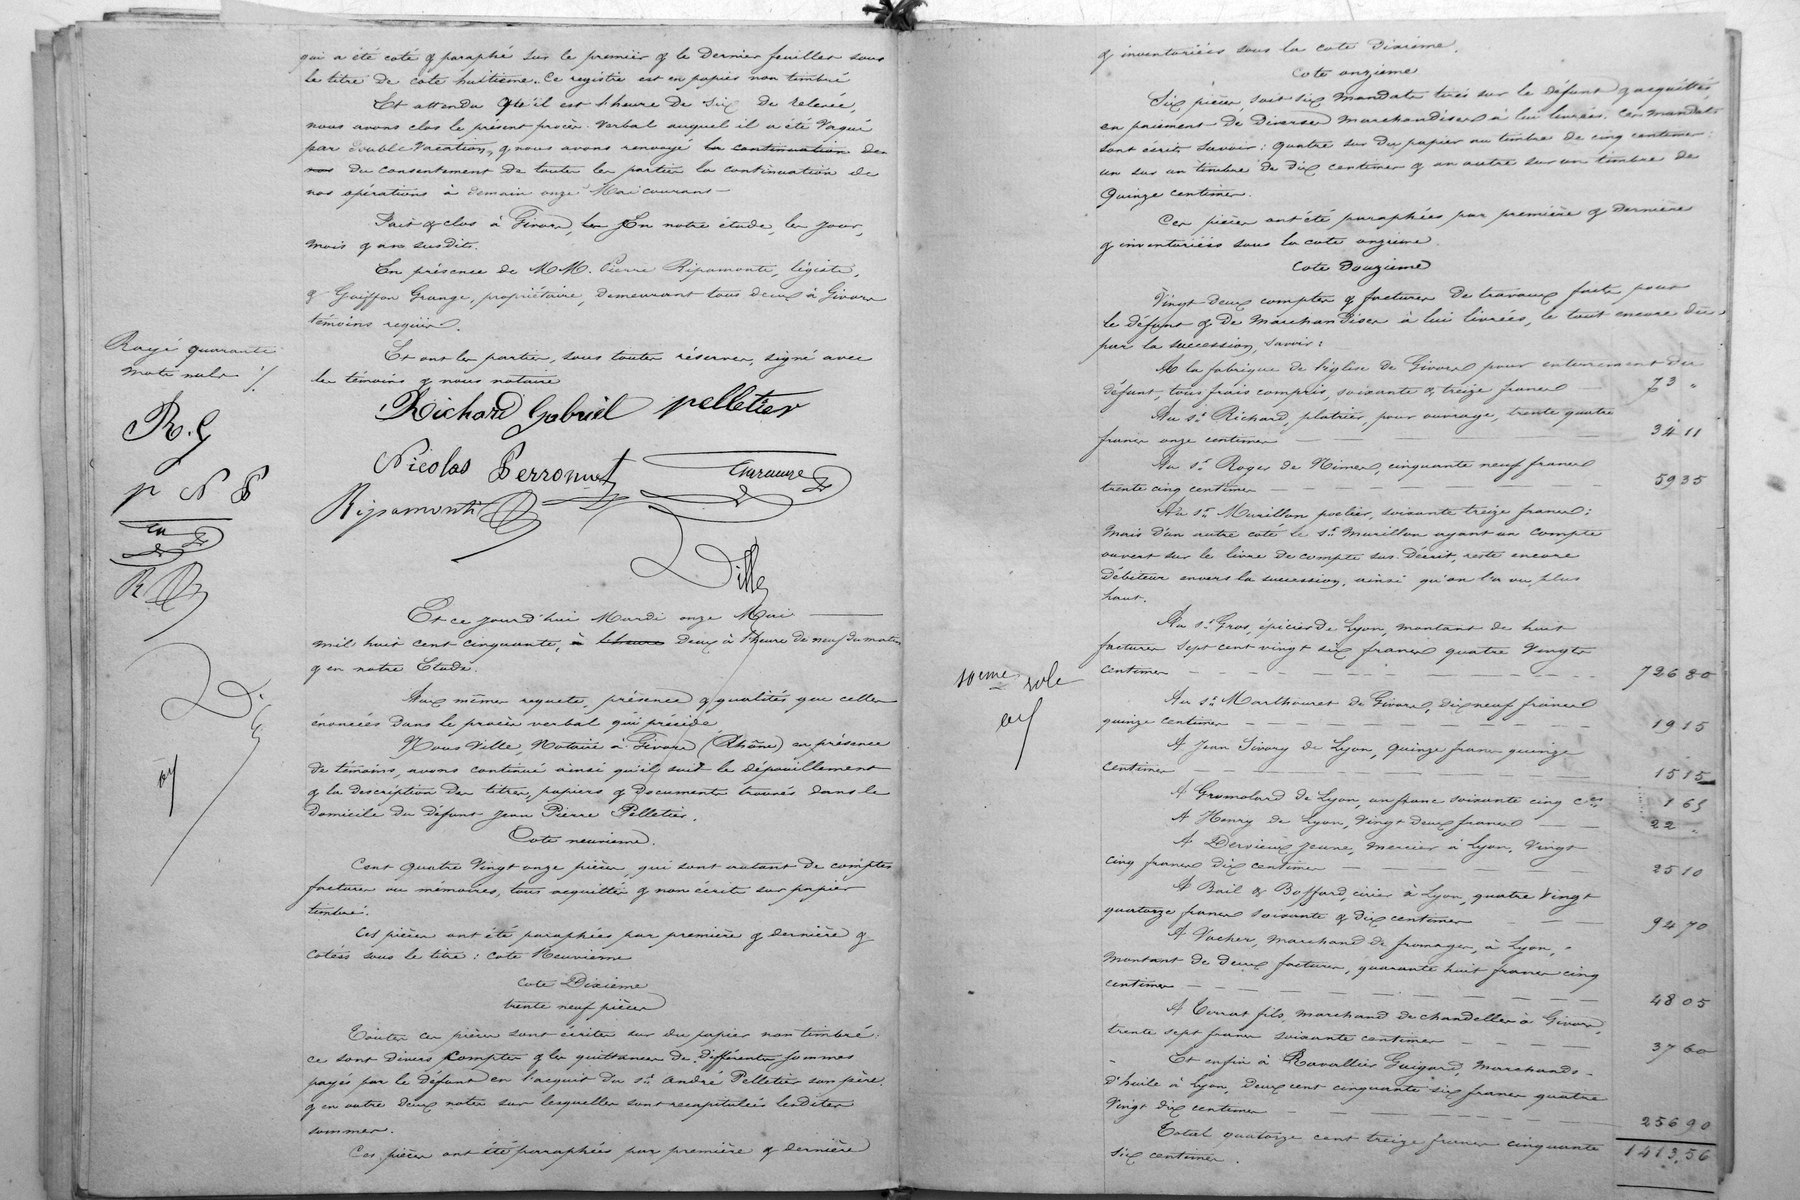 qui a été coté & paraphé sur le premier & le Dernier feuillet sous
le titre de cote huitième. Ce registre est en papier non timbré
Et attendu qu'il est l'heure de six de relevée,
nous avons clos le présent procès-verbal auquel il a été Vaqué
par double Vacation, & nous avons renvoyé la continuation de
nos du consentement de toutes les parties la continuation de
nos opérations à demain onze Mai courant
Fait & clos à Givors, les En notre étude, les jour,
mois & an susdits.
En présence de MM. Pierre Ripamonte, légiste,
& Guiffon Grange, propriétaire, demeurant tous deux à Givors
témoins requis.
Et ont les parties, sous toutes réserves, signé avec
les témoins & nous notaire
Rayé quarante
mots nuls ·/.
Richard Gabriel pelletier
R. G
Nicolas Perronnet
p N P
Ripamonti
R
Ville
Et ce jourd'hui Mardi onze Mai
mil huit cent cinquante, à l'heure deux à l'heure de neuf du matin
& en notre Etude.
Aux mêmes requete, présence & qualités que celles
énoncées dans le procès verbal qui précède
Nous Ville, Notaire à Givors (Rhône) en présence
de témoins, avons continué ainsi qu'il suit le dépouillement
& la description des titres, papiers & documents trouvés dans le
domicile du défunt Jean Pierre Pelletier.
Cote neuvième.
Cent quatre Vingt onze pièces, qui sont autant de comptes
factures ou mémoires, tous acquittés & non écrits sur papier
timbré.
Ces pièces ont été paraphées par première & dernière &
cotées sous le titre : cote Neuvième
cote Dixième
trente neuf pièces
Toutes ces pièces sont écrites sur du papier non timbré :
ce sont divers comptes & les quittances de différentes sommes
payés par le défunt en l'acquit du sr. André Pelletier son père.
& en outre deux notes sur lesquelles sont recapitulées lesdites
sommes.
Ces pièces ont été paraphées par première & dernière
& inventoriées sous la cote Dixième.
Cote onzième
Six pièces, soit six mandats tirés sur le défunt & acquittés,
en paiement de diverses marchandises à lui livrées. Ces mandats
sont écrits savoir : quatre sur du papier au timbre de cinq centimes :
un sur un timbre de dix centimes & un autre sur un timbre de
quinze centimes.
Ces pièces ont été paraphées par première & dernière
& inventoriées sous la cote onzième.
Cote douzième
Vingt deux comptes & factures de travaux faits pour
le défunt & de marchandises à lui livrées, le tout encore dû
par la succession, savoir :
A la fabrique de l'église de Givors pour enterrement du
défunt, tous frais compris, soixante & treize francs 73 "
Au sr. Richard, platrier, pour ouvrage, trente quatre
francs onze centimes 34 11
Au sr. Roger de Nimes, cinquante neuf francs
trente cinq centimes 59 35
Au sr. Marillon poelier, soixante treize francs :
mais d'un autre coté le sr. Marillon ayant un compte
ouvert sur le livre de compte sus-décrit, reste encore
débiteur envers la succession, ainsi qu'on l'a vu plus
haut.
Au sr. Gros, épicier de Lyon, montant de huit
factures sept cent vingt six francs quatre Vingts
centimes 726 80
10eme role
Au sr. Marthouret de Givors, dix neuf francs
quinze centimes 19 15
A Jean Sivory de Lyon, quinze francs quinze
centimes 15 15
A Gromolard de Lyon, un franc soixante cinq ces 1 65
A Henry de Lyon, Vingt deux francs 22 "
A Dervieux jeune, mercier à Lyon, Vingt
cinq francs dix centimes 25 10
A Bail & Boffard, cirier à Lyon, quatre Vingt
quatorze francs soixante & dix centimes 94 70
A Vacher, marchand de fromages, à Lyon,
montant de deux factures, quarante huit francs cinq
centimes 48 05
A Corrat fils, marchand de chandelles à Givors,
trente sept francs soixante centimes 37 60
Et enfin à Ravallier Guigard, marchands
d'huile à Lyon, deux cent cinquante six francs quatre
Vingt dix centimes 256 90
Total quatorze cent treize francs cinquante
six centimes. 1413,56